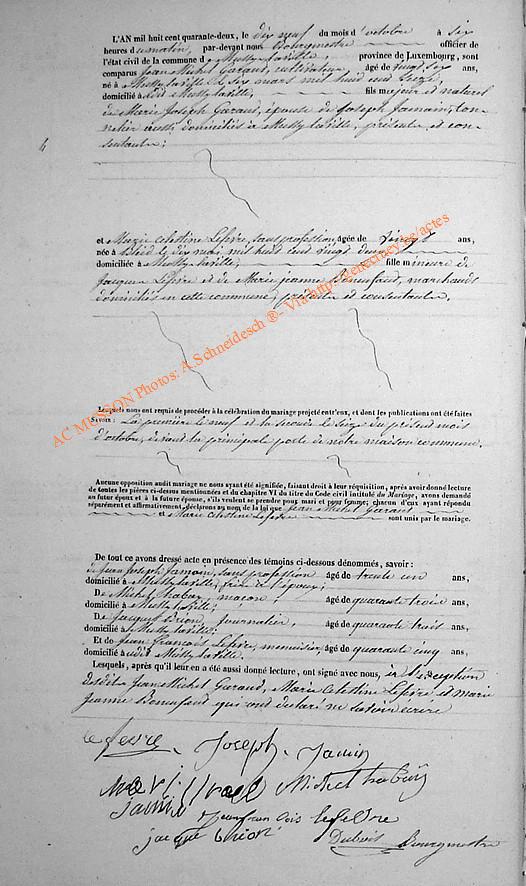 L'AN mil huit cent quarante-deux, le dix neuf du mois d'octobre à six
heures du matin, par-devant nous Bourgmestre officier de
l'état civil de la commune de Mussy la ville, province de Luxembourg, sont
comparus Jean Michel Garaud, cultivateur âgé de vingt six ans,
né à Mussy la ville le six mars mil huit cent seize,
domicilié à dit Mussy la ville, fils majeur et naturel
de Marie Joseph Garaud, épouse de Joseph Jamin,
domiciliés à Mussy la ville, présente et con-
sentante;
et Marie Celestine Lefevre, sans profession, âgée de vingt ans,
née à le dix mai mil huit cent vingt deux
domiciliée à Mussy la ville fille mineure de
Jacques Lefevre et de Marie jeanne Bonenfand, marchands
domiciliés en cette commune, présents et consentants.
Lesquels nous ont requis de procéder à la célébration du mariage projeté entr'eux, et dont les publications ont été faites
Savoir: La première le neuf et la seconde le seize du présent mois
d'octobre, devant la principale porte de notre maison commune.
Aucune opposition audit mariage ne nous ayant été signifiée, faisant droit à leur réquisition, après avoir donné lecture
de toutes les pièces ci-dessus mentionnées et du chapitre VI du titre du Code civil intitulé du Mariage, avons demandé
au futur époux et à la future épouse, s'ils veulent se prendre pour mari et pour femme; chacun d'eux ayant répondu
séparément et affirmativement, déclarons au nom de la loi que Jean Michel Garaud
et Marie Celestine Lefevre sont unis par le mariage.
De tout ce avons dressé acte en présence des témoins ci-dessous dénommés, savoir:
de Jean Joseph Jamin, sans profession âgé de trente un ans,
domicilié à Mussy la ville, frère de l'époux;
De Michel habay, maçon; âgé de quarante trois ans,
domicilié à Mussy la ville;
De Jacques Brion, journalier, âgé de quarante trois ans,
domicilié à Mussy la ville;
Et de Jean François Lefevre, menuisier, âgé de quarante cinq ans,
domicilié à udit Mussy la ville.
Lesquels, après qu'il leur en a été aussi donné lecture, ont signé avec nous, à l'exception
desdits Jean Michel Garaud, Marie Celestine Lefevre et marie
Jeanne Bonenfand qui ont déclaré ne savoir écrire
le fevre Joseph Jamin
Michel habay
Jamin
jean fran cois lefebvre
jacque brion Dubois Bourgmestre
AC MUSSON Photos: A.Schneidesch ®- Via http://geneenney.be/actes